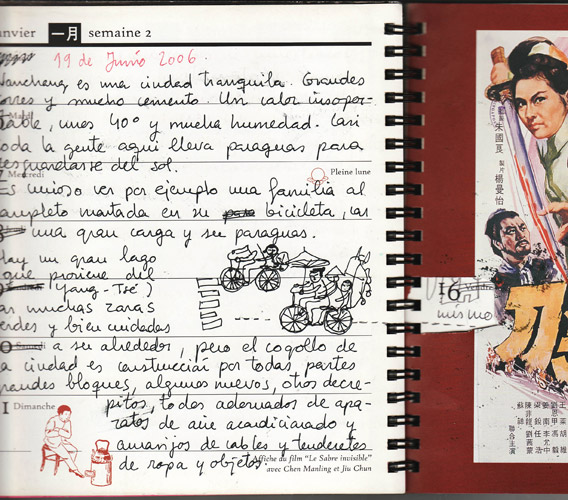 anvier 一月 semaine 2
19 de Junio 2006.
Nanchang es una ciudad tranquila. Grandes
torres y mucho cemento. Un calor insopor-
Mardi
table, unos 40º y mucha humedad. Casi
toda la gente aquí lleva paraguas para
resguardarse del sol.
Mercredi
Pleine lune
Es curioso ver por ejemplo una familia al
completo montada en su bicicleta, con
una gran carga y su paraguas.
Hay un gran lago
que proviene del
Yang-Tsé)
con muchas zonas
verdes y bien cuidadas
Samedi
a su alrededor, pero el cogollo de
la ciudad es construcción por todas partes
grandes bloques, algunos nuevos, otros decre-
Dimanche
pitos, todos adornados de apa-
ratos de aire acondicionado y
amasijos de cables y tendederos
de ropa y objetos.
Affiche du film "Le Sabre invisible"
avec Chen Manling et Jiu Chun
16
mismo
朱國良
製片
楊曼怡
聯合主演